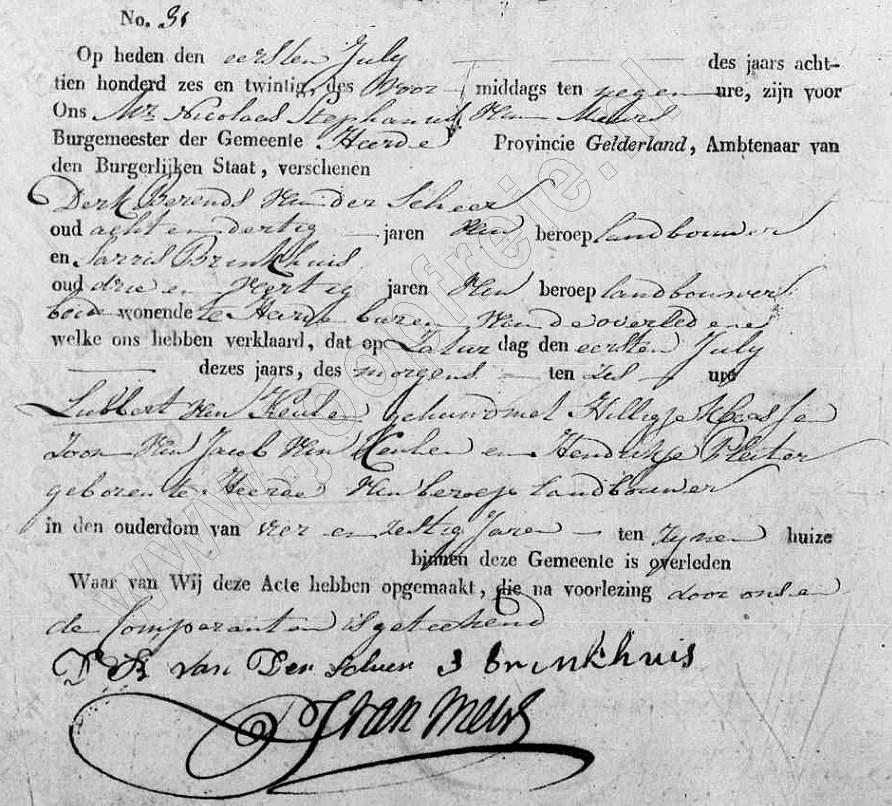 No. 31
Op heden den eersten July des jaars acht-
tien honderd zes en twintig, des Voor middags ten negen ure, zijn voor
Ons Mr. Nicolaas Stephanus Van Meurs
Burgemeester der Gemeente Heerde Provincie Gelderland, Ambtenaar van
den Burgerlijken Staat, verschenen
Derk Berends Van der Scheer
oud acht en dertig jaren Van beroep landbouwer
en Jarris Brinkhuis
oud drie en Veertig jaren Van beroep landbouwer
beide wonende te Heerde buren Van de overledene
welke ons hebben verklaard, dat op Zatur dag den eersten July
dezes jaars, des morgens ten zes ure
Lubbert Van Keulen gehuwd met Hilligje Klaassen
Zoon Van Jacob Van Keulen en Hendrikje Pleiter
geboren te Heerde Van beroep landbouwer
in den ouderdom van vier en zestig Jaren ten zynen huize
binnen deze Gemeente is overleden
Waar van Wij deze Acte hebben opgemaakt, die na voorlezing door ons en
de Comparanten is geteekend
D B van Der scheer J brinkhuis
van Meurs
www.jeoosfreije.nl